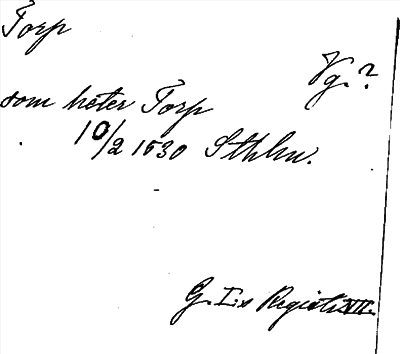 Torp
Vg.?
som heter Torp
10/2 1530 Sthlm.
G. I:s Registr. VII.